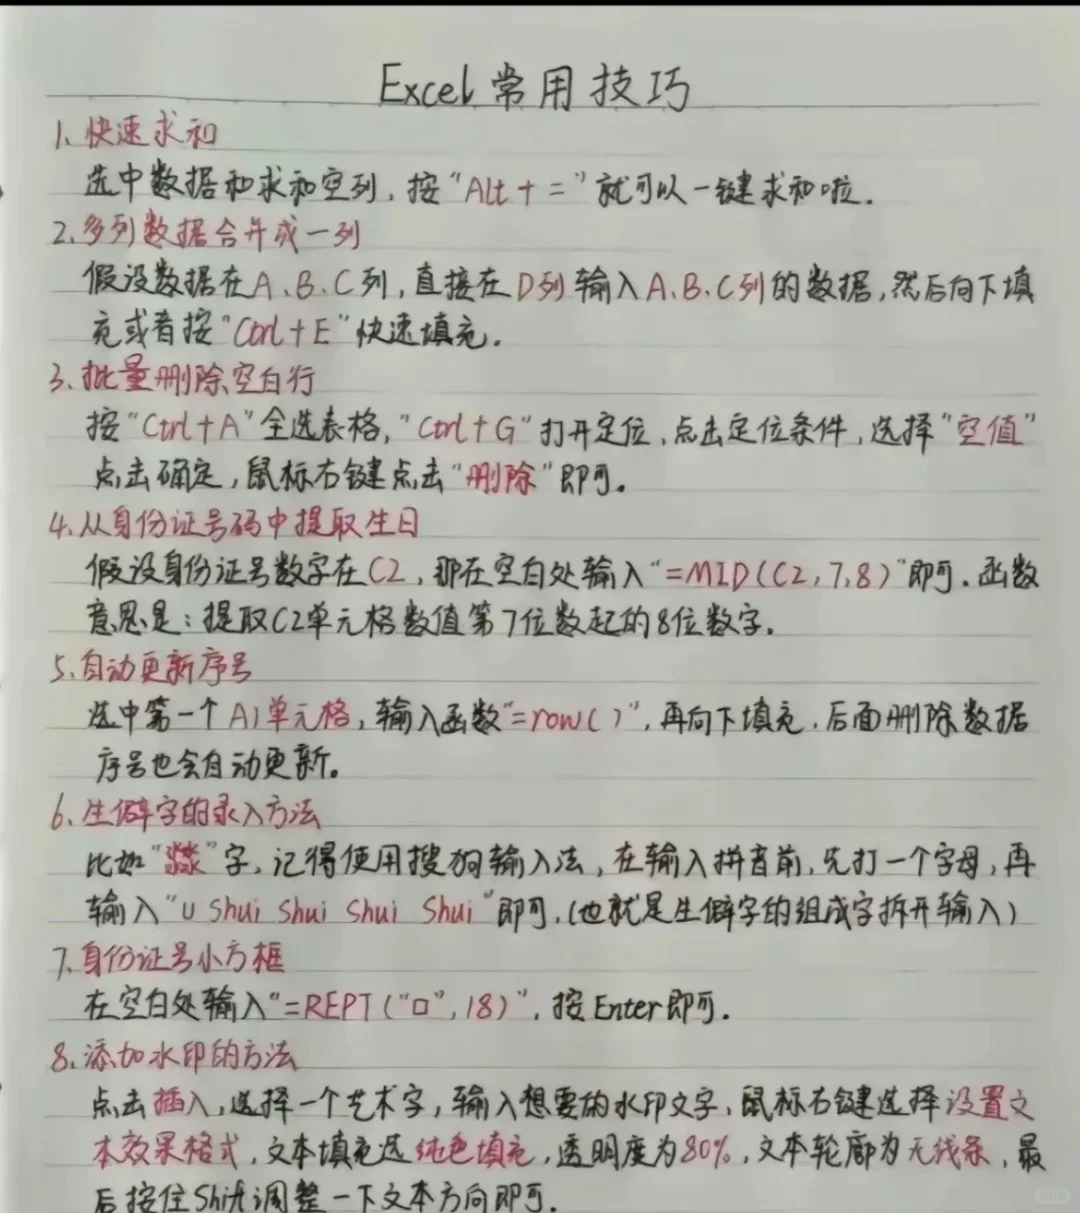 Excel常用技巧
1、快速求和
选中数据和求和空列，按“Alt+=”就可以一键求和啦．
2、多列数据合并成一列
假设数据在A、B、C列，直接在D列输入A、B、C列的数据，然后向下填
充或者按“Ctrl+E”快速填充．
3、批量删除空白行
按“Ctrl+A”全选表格，“Ctrl+G”打开定位、点击定位条件，选择“空值”
点击确定，鼠标右键点击“删除”即可。
4、从身份证号码中提取生日
假设身份证号数字在C2，那在空白处输入“=MID(C2,7,8)”即可．函数
意思是：提取C2单元格数值第7位数起的8位数字．
5、自动更新序号
选中第一个A1单元格，输入函数“=row()”，再向下填充．后面删除数据
序号也会自动更新。
6、生僻字的录入方法
比如“㵘”字，记得使用搜狗输入法，在输入拼音前，先打一个字母，再
输入“U Shui Shui Shui Shui”即可，(也就是生僻字的组成字拆开输入)
7、身份证号小方框
在空白处输入“=REPT("口",18)”，按Enter即可．
8、添加水印的方法
点击插入，选择一个艺术字，输入想要的水印文字，鼠标右键选择设置文
本效果格式，文本填充选纯色填充，透明度为80%，文本轮廓为无线条，最
后按住Shift调整一下文本方向即可．
小红书